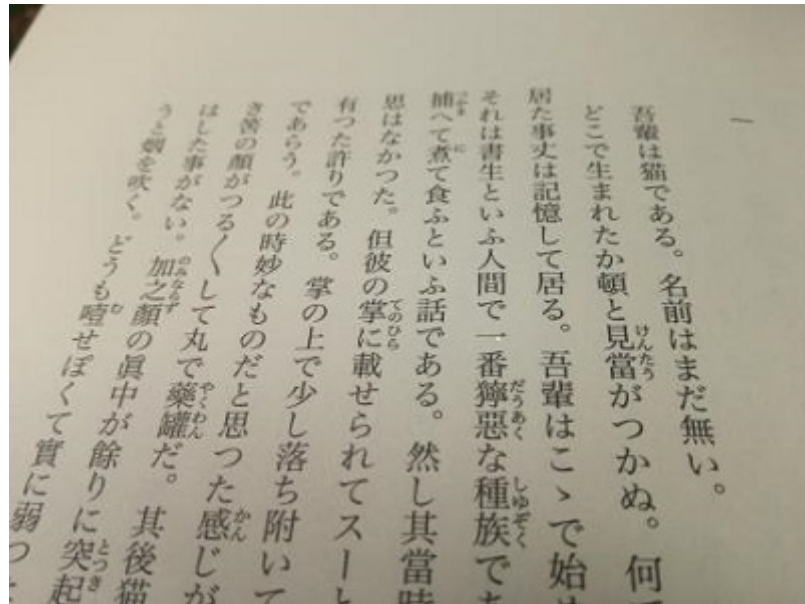 一
吾輩は猫である。名前はまだ無い。
どこで生まれたか頓と見當がつかぬ。何
居た事丈は記憶して居る。吾輩はこゝで始め
それは書生といふ人間で一番獰惡な種族であ
捕へて煮て食ふといふ話である。然し其當時
思はなかつた。但彼の掌に載せられてスーと
有つた許りである。掌の上で少し落ち附いて
であらう。此の時妙なものだと思つた感じが
き筈の顏がつる〱して丸で藥罐だ。其後猫
はした事がない。加之顏の眞中が餘りに突起
うと烟を吹く。どうも噎せぽくて實に弱つ